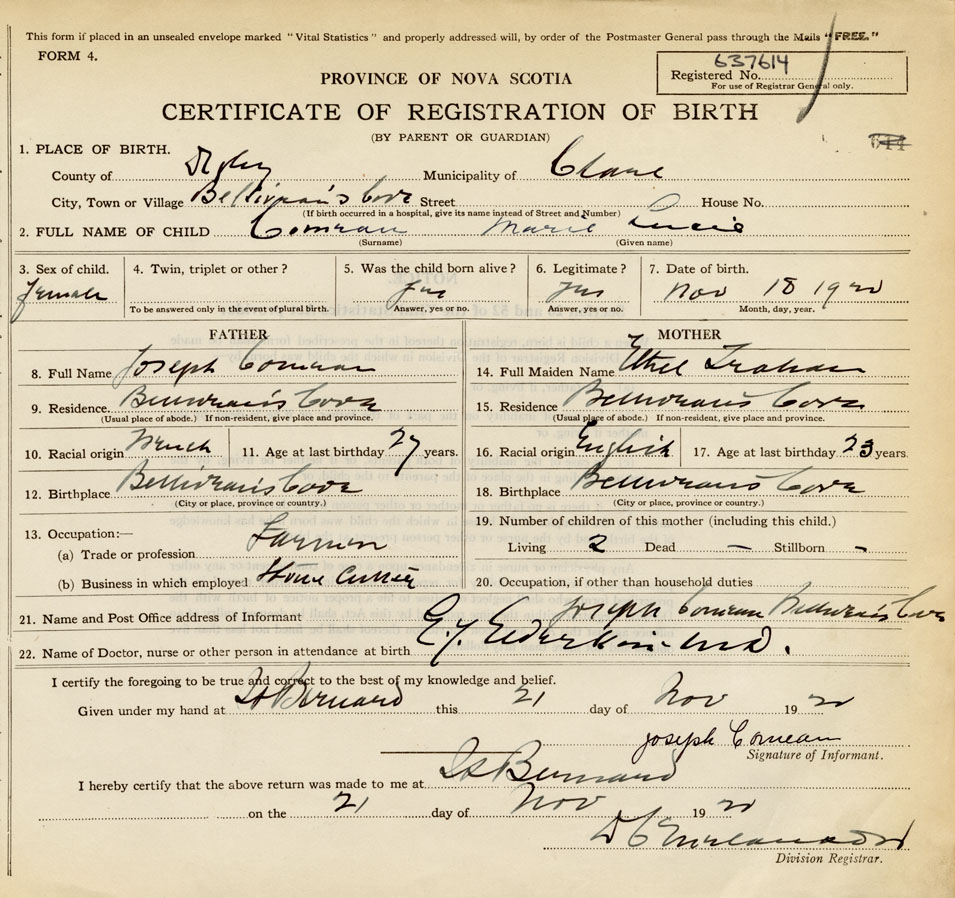 This form if placed in an unsealed envelope marked "Vital Statistics" and properly addressed will, by order of the Postmaster General pass through the Mails "FREE."
FORM 4.
637614
Registered No.
For use of Registrar General only.
PROVINCE OF NOVA SCOTIA
CERTIFICATE OF REGISTRATION OF BIRTH
(BY PARENT OR GUARDIAN)
1. PLACE OF BIRTH.
County of Digby Municipality of Clare
City, Town or Village Belliveau's Cove Street House No.
(If birth occurred in a hospital, give its name instead of Street and Number)
2. FULL NAME OF CHILD Comeau Marie
(Surname) (Given name)
3. Sex of child. 4. Twin, triplet or other? 5. Was the child born alive? 6. Legitimate? 7. Date of birth.
Female yes yes Nov 18 1920
To be answered only in the event of plural birth. Answer, yes or no. Answer, yes or no. Month, day, year.
FATHER MOTHER
8. Full Name Joseph Comeau 14. Full Maiden Name Ethel
9. Residence. Belliveau's Cove 15. Residence Belliveau's Cove
(Usual place of abode.) If non-resident, give place and province. (Usual place of abode.) If non-resident, give place and province.
10. Racial origin French 11. Age at last birthday 27 years. 16. Racial origin English 17. Age at last birthday 23 years.
12. Birthplace Belliveau's Cove 18. Birthplace Belliveau's Cove
(City or place, province or country.) (City or place, province or country.)
13. Occupation:— 19. Number of children of this mother (including this child.)
(a) Trade or profession Farmer Living 2 Dead — Stillborn -
(b) Business in which employed 20. Occupation, if other than household duties
21. Name and Post Office address of Informant Joseph Comeau Belliveau's Cove
22. Name of Doctor, nurse or other person in attendance at birth E.Y. Elderkin M.D.
I certify the foregoing to be true and correct to the best of my knowledge and belief.
Given under my hand at St Bernard this 21 day of Nov 1920
Joseph Comeau
Signature of Informant.
I hereby certify that the above return was made to me at St Bernard
on the 21 day of Nov 1920
Division Registrar.